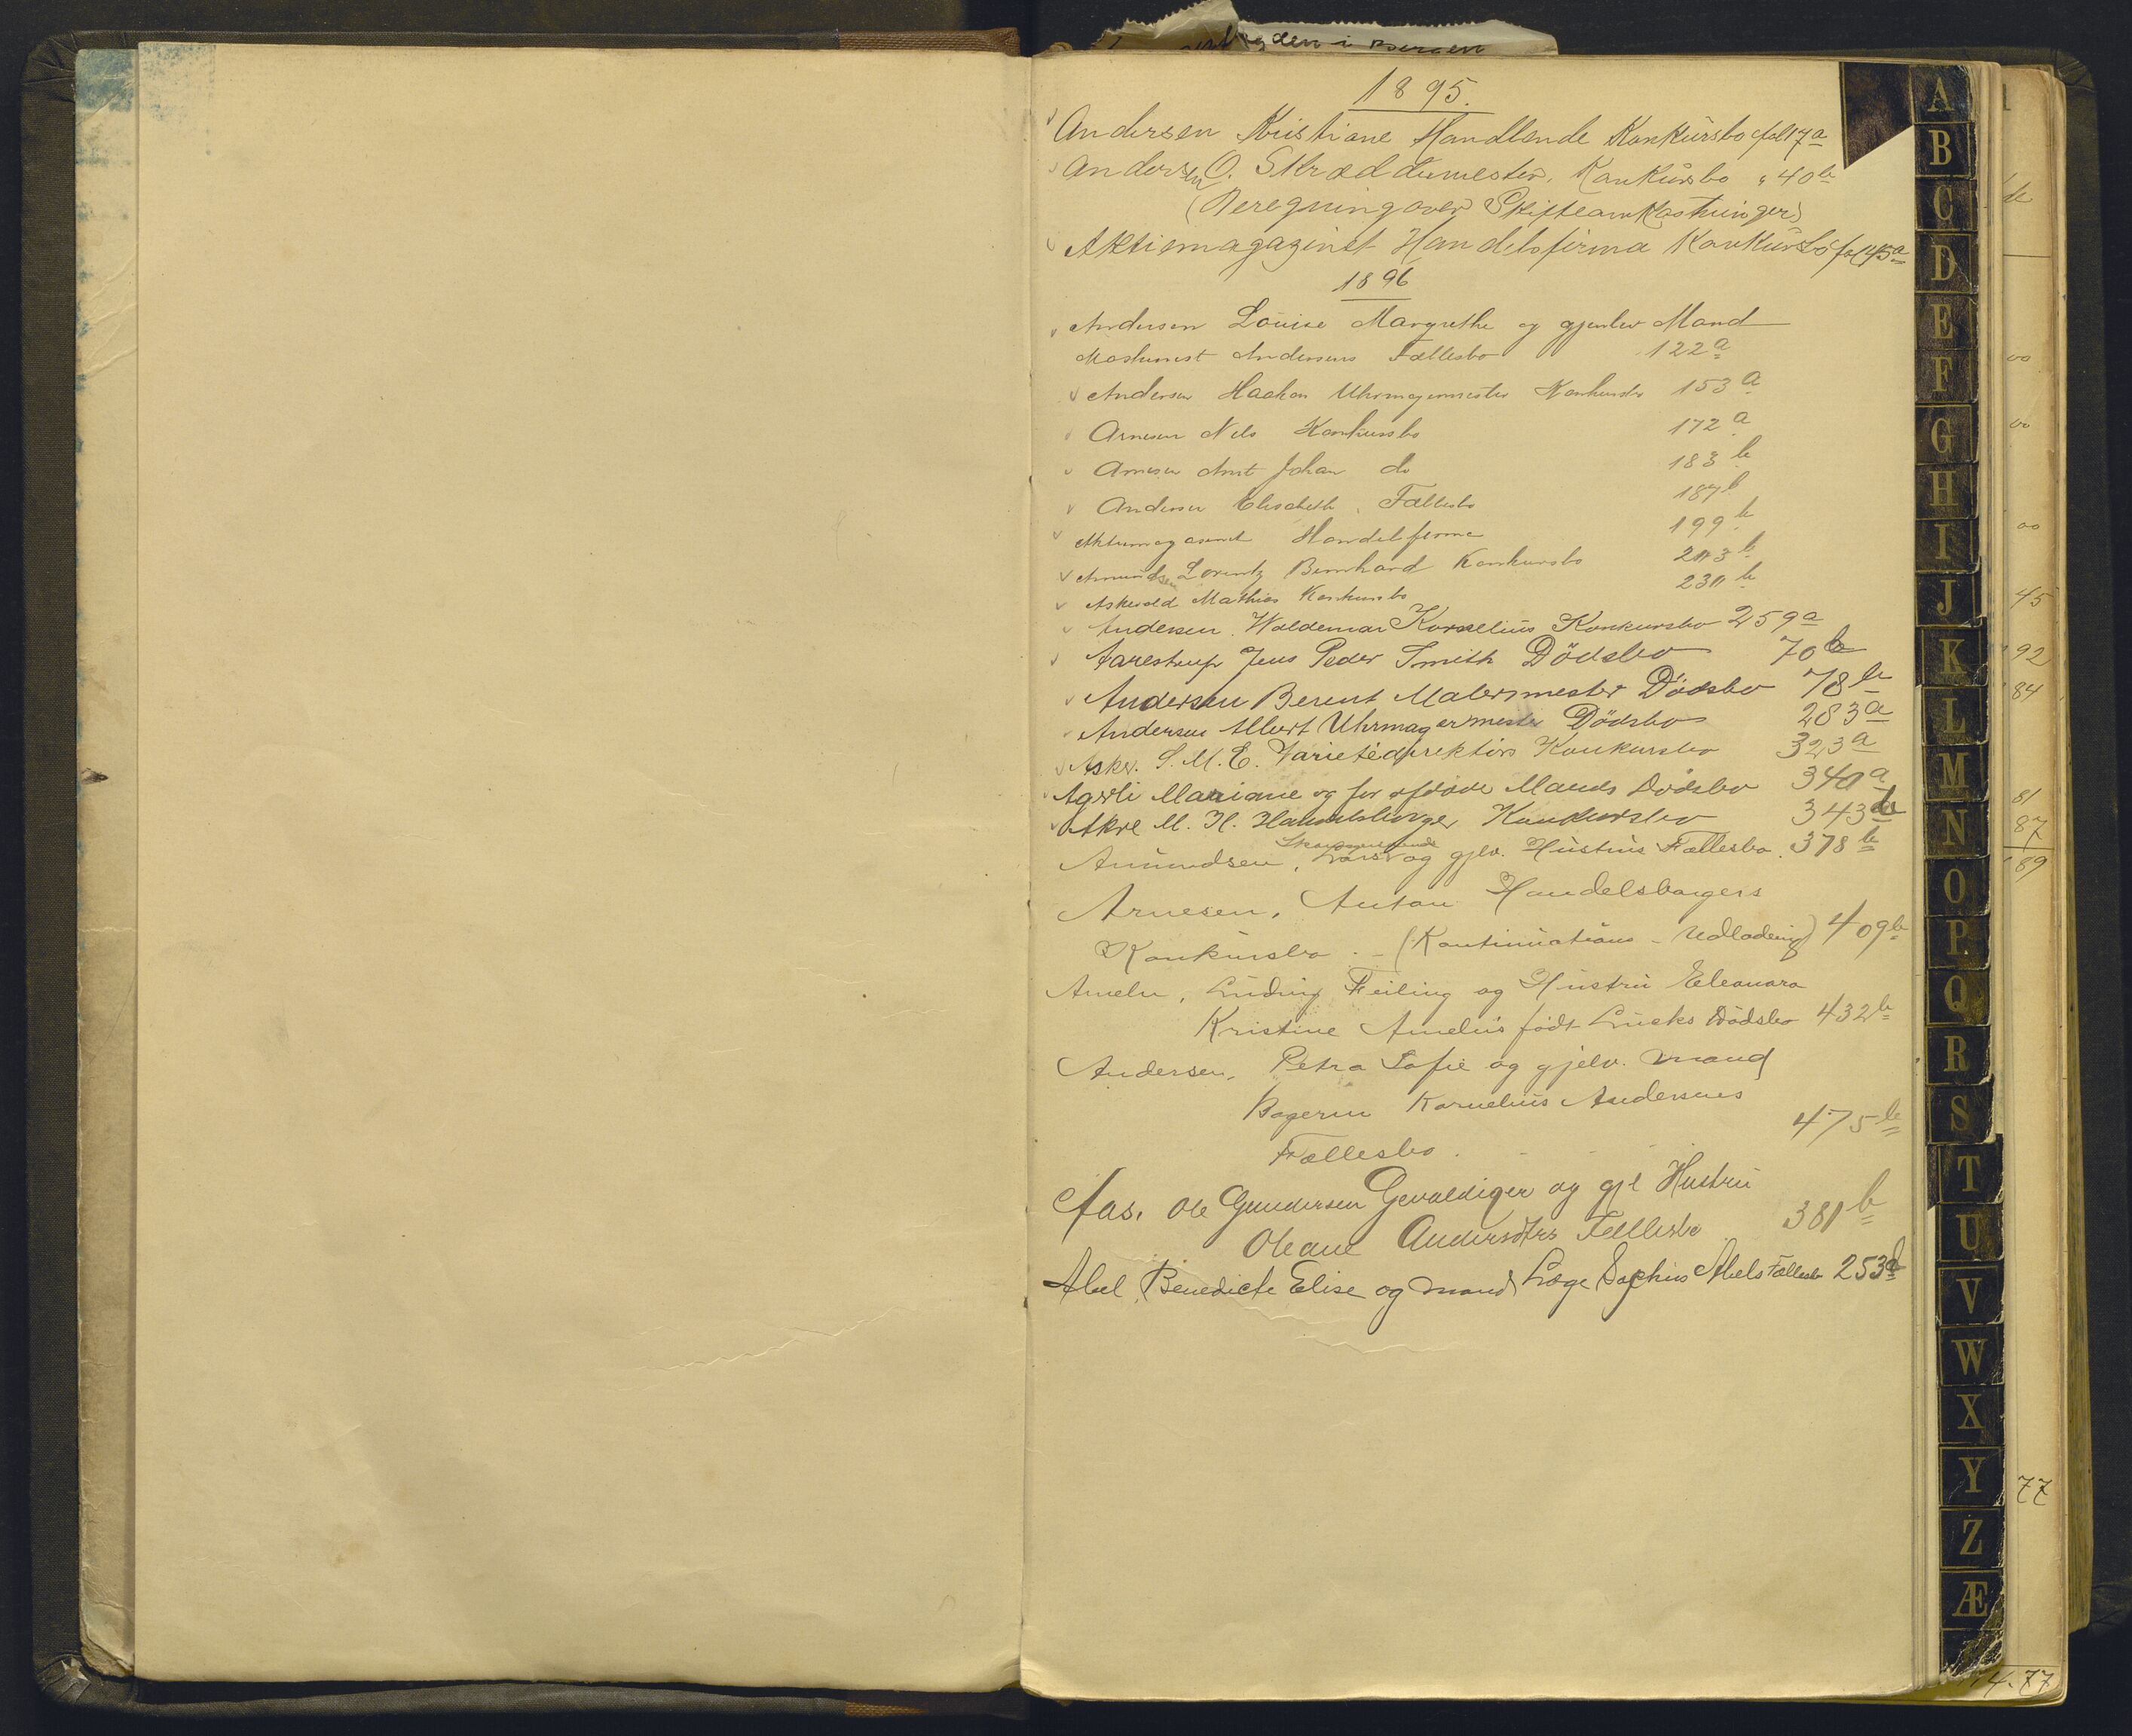 1895.
Andersen Kristiane Handlende Konkursbo fol 17a
Andersen O. Skræddermester, Konkursbo " 40b
(Beregning over Skifteomkostninger)
Aktiemagazinet Handelsfirma Konkursbo fol 45a
1896
Andersen Louise Margrethe og gjenlev Mand
Maskinist Andersens Fællesbo 122a
Andersen Haakon Uhrmagermester Konkursbo 153a
Arnesen Nils Konkursbo 172a
Arnesen Arnt Johan do 183b
Andersen Elisabeth, Fællesbo 187b
Aktiemagasinet Handelsfirma 199b
Amundsen Lorentz Bernhard Konkursbo 203b
Askevold Mathias Konkursbo 230b
Andersen Waldemar Kornelius Konkursbo 259a
Aarestrup Jens Peder Smith Dödsbo 70b
Andersen Berent Malermester Dödsbo 78b
Andersen Albert Uhrmagermester Dödsbo 283a
Asker. S. M. E. Varietédirektörs Konkursbo 323a
Mariane og før afdøde Mands Dødsbo 340a
Akre M. H. Handelsborger Konkursbo 343b
Amundsen, Lars og gjlv. Hustrus Fællesbo. 378b
Arnesen, Anton Handelsborgers
Konkursbo. - (Kontinuations-Udlodning) 409b
Ameln, Ludvig Feiling og Hustru Eleonora
Kristine Amelns født Lucks Dødsbo 432b
Andersen, Petra Sofie og gjelv. mand
Kornelius Andersens
Fællesbo. - - 475b
Aas, Ole Gundersen Gevaldiger og gjl Hustru
Oleane Andersdtrs Fællesbo 381b
Abel, Benedicte Elise og mand Læge Sophus Abels Fællesbo 253b
A
B
C
D
E
F
G
H
I
J
K
L
M
N
O
P
Q
R
S
T
U
V
W
X
Y
Z
Æ
00
00
00
45
92
84
81
87
89
77
4.77